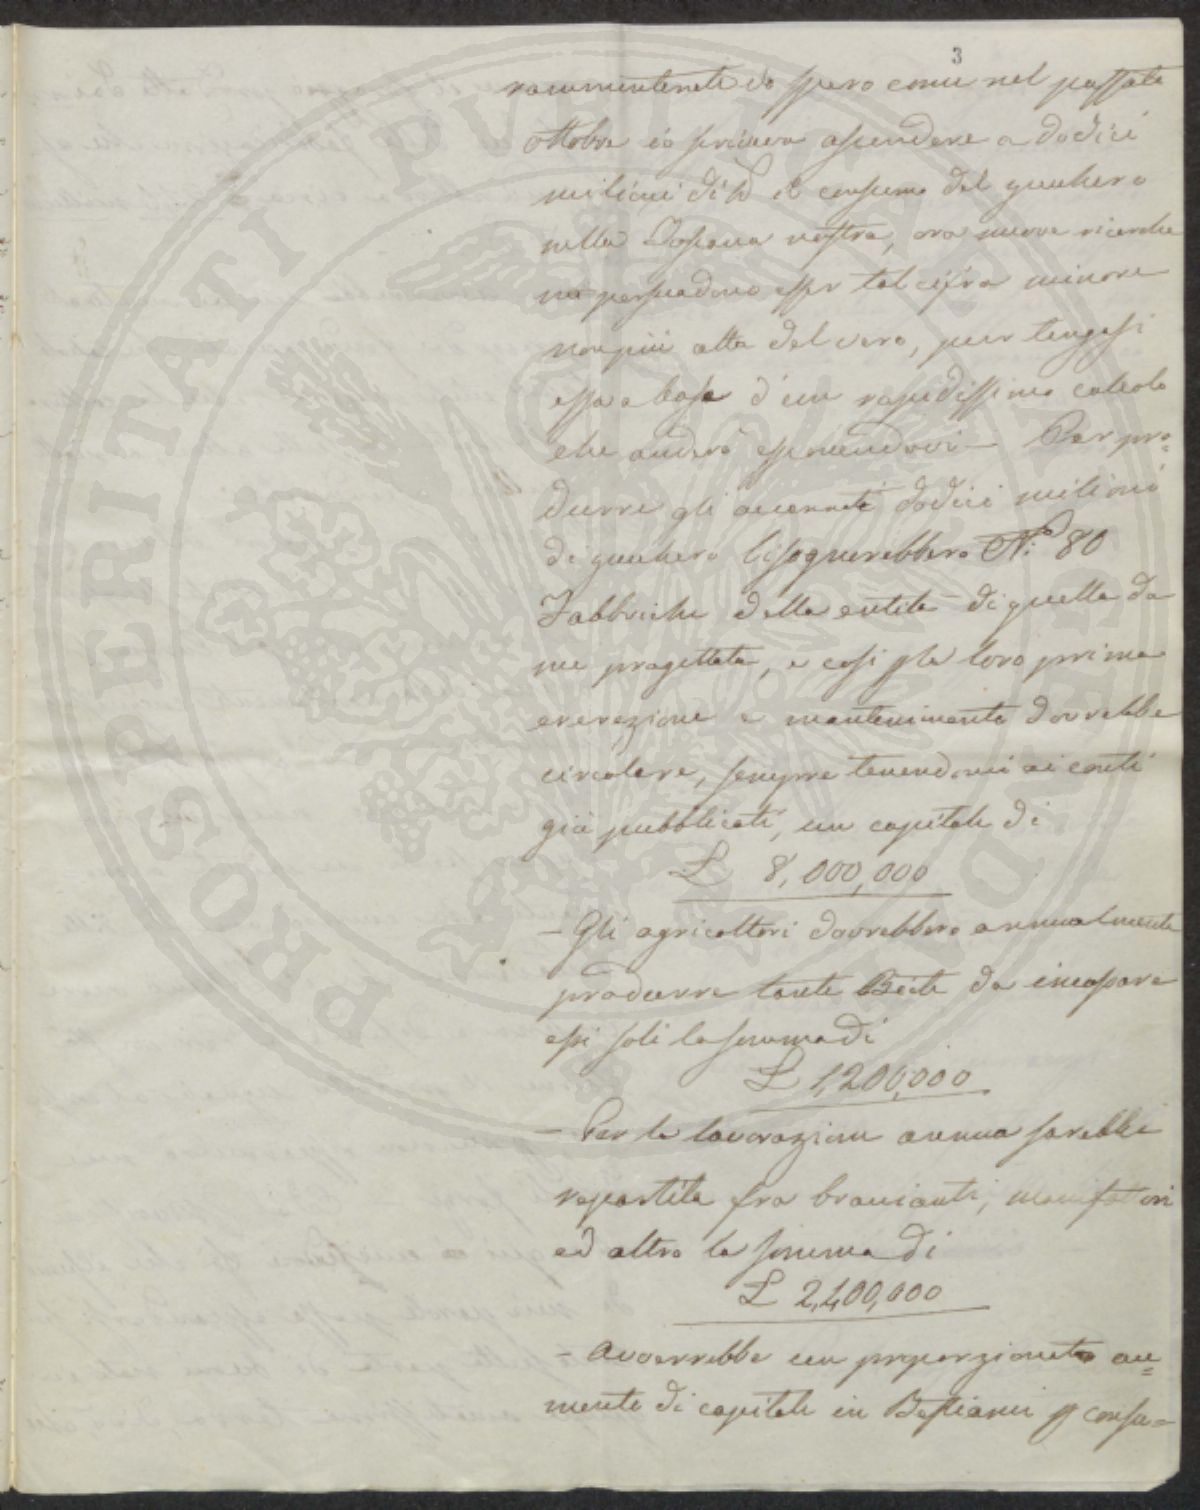 3
rammenterete io spero come nel passato
ottobre io faceva ascendere a dodici
milioni di lb il consumo del zucchero
nella Toscana nostra, ora nuove ricerche
mi persuadono esser tal cifra minore
non più alta del vero, pur tengasi
essa a base d'un rapidissimo calcolo
che andrò esponendovi — Per pro=
durre gli accennati dodici milioni
di zucchero bisognerebbero N.º 80
Fabbriche della entità di quella da
me progettata, e così p la loro prima
ererezione e mantenimento dovrebbe
circolare, sempre tenendomi ai conti
già pubblicati, un capitale di
£ 8,000,000
— Gli agricoltori dovrebbero annualmente
produrre tante Biete da incassare
essi soli la somma di
£ 1,200,000
— Per la lavorazione annua sarebbe
repartita fra braccianti, manifattori
ed altro la somma di
£ 2,400,000
— Avverrebbe un proporzionato au=
mento di capitale in Bestiami p consu=
PROSPERITATI PVBLICAE AVGENDAE